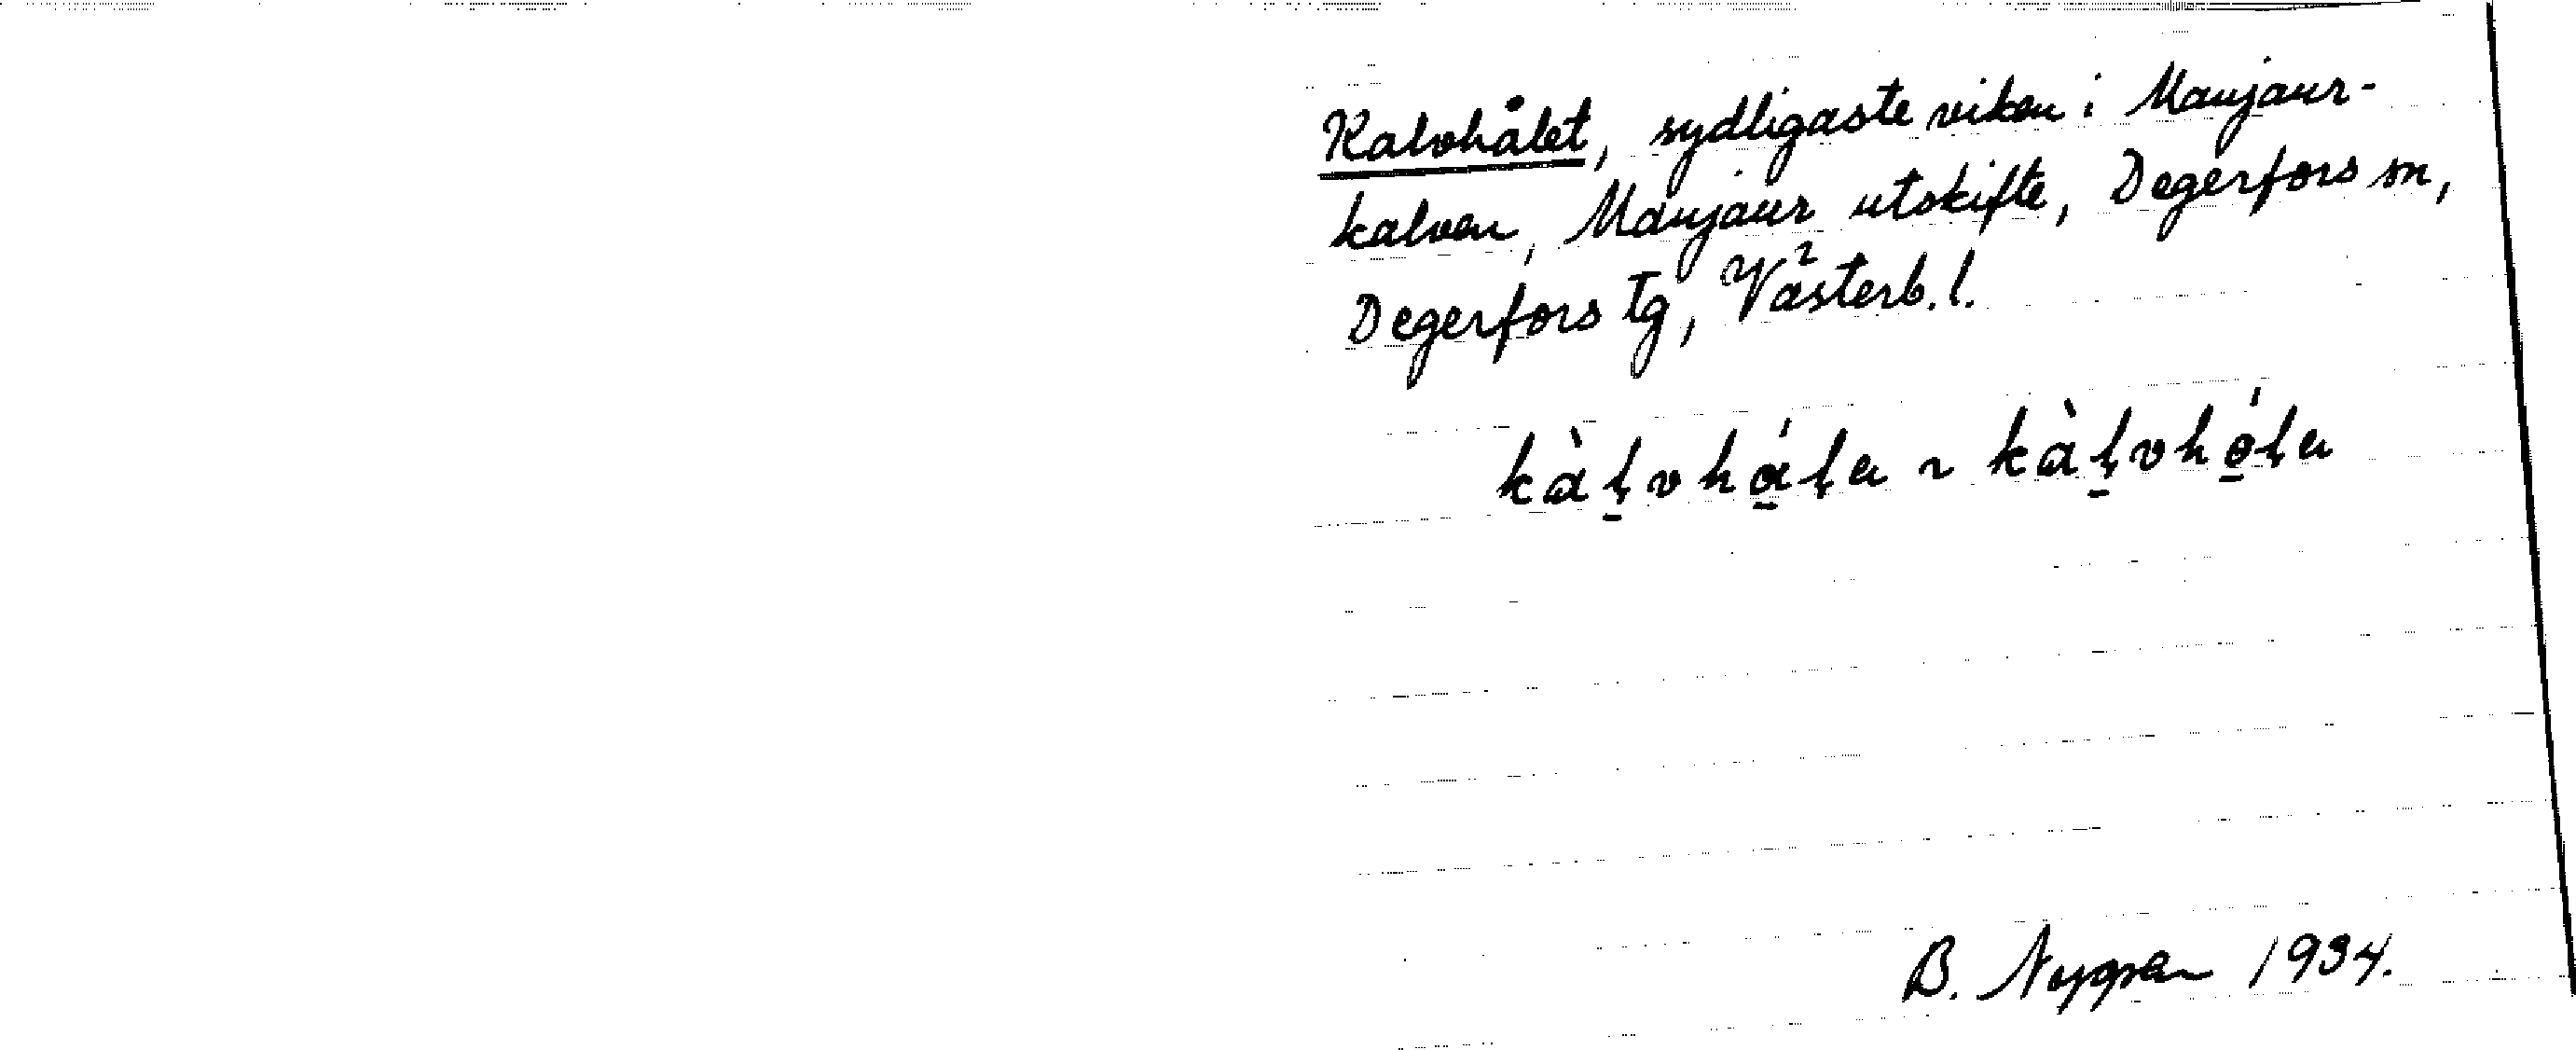 Kalvhålet, sydligaste viken i Maujaur-
kalven, Maujaur utskifte, Degerfors sn,
Degerfors tg, Västerb. l.
kàl̨vhál̨a ~ kàl̨vhól̨a
B. Nygren 1934.